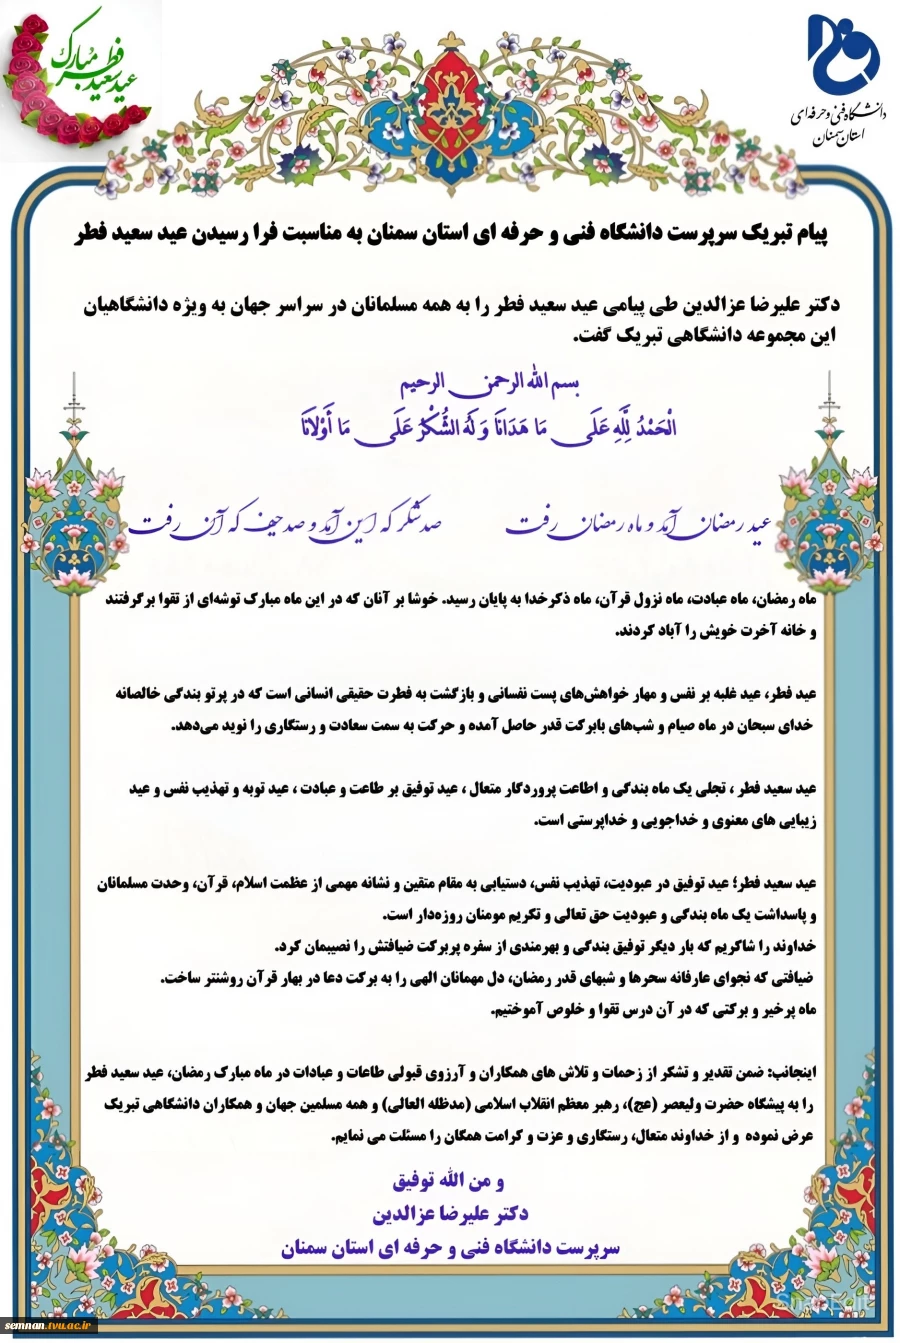 عید سعید فطر مبارک
دانشگاه فنی و حرفه‌ای
استان سمنان
پیام تبریک سرپرست دانشگاه فنی و حرفه ای استان سمنان به مناسبت فرا رسیدن عید سعید فطر
دکتر علیرضا عزالدین طی پیامی عید سعید فطر را به همه مسلمانان در سراسر جهان به ویژه دانشگاهیان
این مجموعه دانشگاهی تبریک گفت.
بسم الله الرحمن الرحیم
الْحَمْدُ لِلَّهِ عَلَى مَا هَدَانَا وَ لَهُ الشُّكْرُ عَلَى مَا أَوْلَانَا
عید رمضان آمد و ماه رمضان رفت صد شکر که این آمد و صد حیف که آن رفت
ماه رمضان، ماه عبادت، ماه نزول قرآن، ماه ذکرخدا به پایان رسید. خوشا بر آنان که در این ماه مبارک توشه‌ای از تقوا برگرفتند
و خانه آخرت خویش را آباد کردند.
عید فطر، عید غلبه بر نفس و مهار خواهش‌های پست نفسانی و بازگشت به فطرت حقیقی انسانی است که در پرتو بندگی خالصانه
خدای سبحان در ماه صیام و شب‌های بابرکت قدر حاصل آمده و حرکت به سمت سعادت و رستگاری را نوید می‌دهد.
عید سعید فطر ، تجلی یک ماه بندگی و اطاعت پروردگار متعال ، عید توفیق بر طاعت و عبادت ، عید توبه و تهذیب نفس و عید
زیبایی های معنوی و خداجویی و خداپرستی است.
عید سعید فطر؛ عید توفیق در عبودیت، تهذیب نفس، دستیابی به مقام متقین و نشانه مهمی از عظمت اسلام، قرآن، وحدت مسلمانان
و پاسداشت یک ماه بندگی و عبودیت حق تعالی و تکریم مومنان روزه‌دار است.
خداوند را شاکریم که بار دیگر توفیق بندگی و بهرمندی از سفره پربرکت ضیافتش را نصیبمان کرد.
ضیافتی که نجوای عارفانه سحرها و شبهای قدر رمضان، دل مهمانان الهی را به برکت دعا در بهار قرآن روشنتر ساخت.
ماه پرخیر و برکتی که در آن درس تقوا و خلوص آموختیم.
اینجانب: ضمن تقدیر و تشکر از زحمات و تلاش های همکاران و آرزوی قبولی طاعات و عبادات در ماه مبارک رمضان، عید سعید فطر
را به پیشگاه حضرت ولیعصر (عج)، رهبر معظم انقلاب اسلامی (مدظله العالی) و همه مسلمین جهان و همکاران دانشگاهی تبریک
عرض نموده و از خداوند متعال، رستگاری و عزت و کرامت همگان را مسئلت می نمایم.
و من الله توفیق
دکتر علیرضا عزالدین
سرپرست دانشگاه فنی و حرفه ای استان سمنان
semnan.tvu.ac.ir